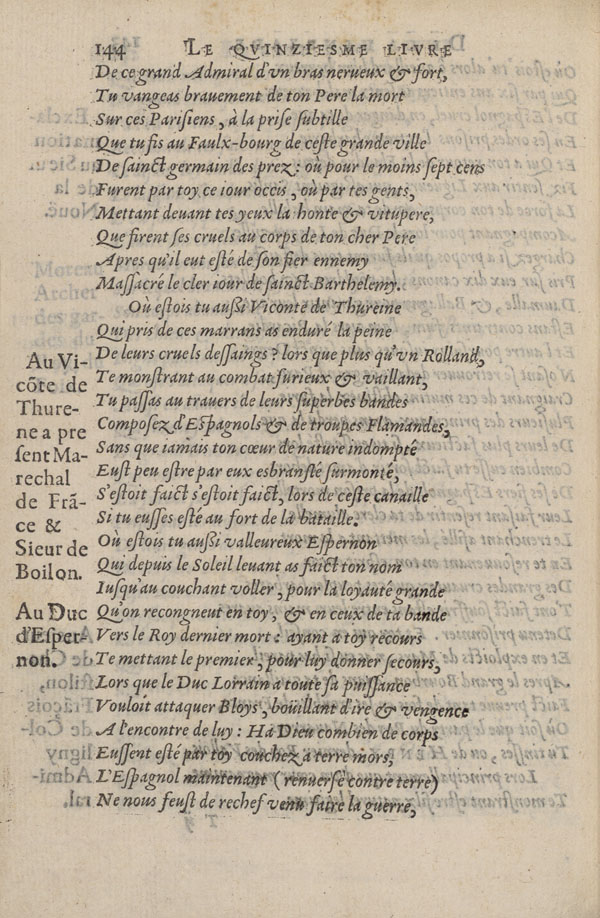 144 LE QVINZIESME LIVRE
De ce grand Admiral d'vn bras nerueux & fort,
Tu vangeas brauement de ton Pere la mort
Sur ces Parisiens, à la prise subtille
Que tu fis au Faulx-bourg de ceste grande ville
De sainct germain des prez: où pour le moins sept cens
Furent par toy ce iour occis, où par tes gents,
Mettant deuant tes yeux la honte & vitupere,
Que firent ses cruels au corps de ton cher Pere
Apres qu'il eut esté de son fier ennemy
Massacré le cler iour de sainct Barthelemy.
Où estois tu außi Viconte de Thureine
Qui pris de ces marrans as enduré la peine
De leurs cruels dessaings? lors que plus qu'vn Rolland,
Te monstrant au combat furieux & vaillant,
Tu passas au trauers de leurs superbes bandes
Composez d'Espagnols & de troupes Flamandes,
Sans que iamais ton cœur de nature indompté
Eust peu estre par eux esbranslé surmonté,
S'estoit faict s'estoit faict, lors de ceste canaille
Si tu eusses esté au fort de la bataille.
Où estois tu außi valleureux Espernon
Qui depuis le Soleil leuant as faict ton nom
Iusqu'au couchant voller, pour la loyauté grande
Qu'on recongneut en toy, & en ceux de ta bande
Vers le Roy dernier mort: ayant a toy recours
Te mettant le premier, pour luy donner secours,
Lors que le Duc Lorrain a toute sa puissance
Vouloit attaquer Bloys, boüillant d'ire & vengence
A l'encontre de luy: Ha Dieu combien de corps
Eussent esté par toy couchez a terre mors,
L'Espagnol maintenant (renuersé contre terre)
Ne nous feust de rechef venu faire la guerre,
Au Vi-
côte de
Thure-
ne a pre
sent Ma-
rechal
de Frã-
ce &
Sieur de
Boilon.
Au Duc
d'Esper-
non.